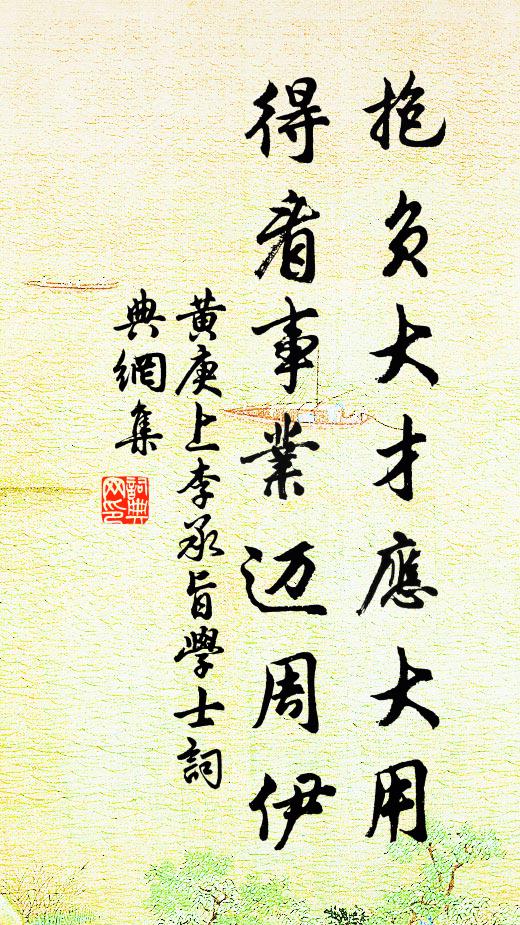 抱负大才應大用
得看事業迈周伊
黄庚上李承旨學士詞
典網集
詞典网印